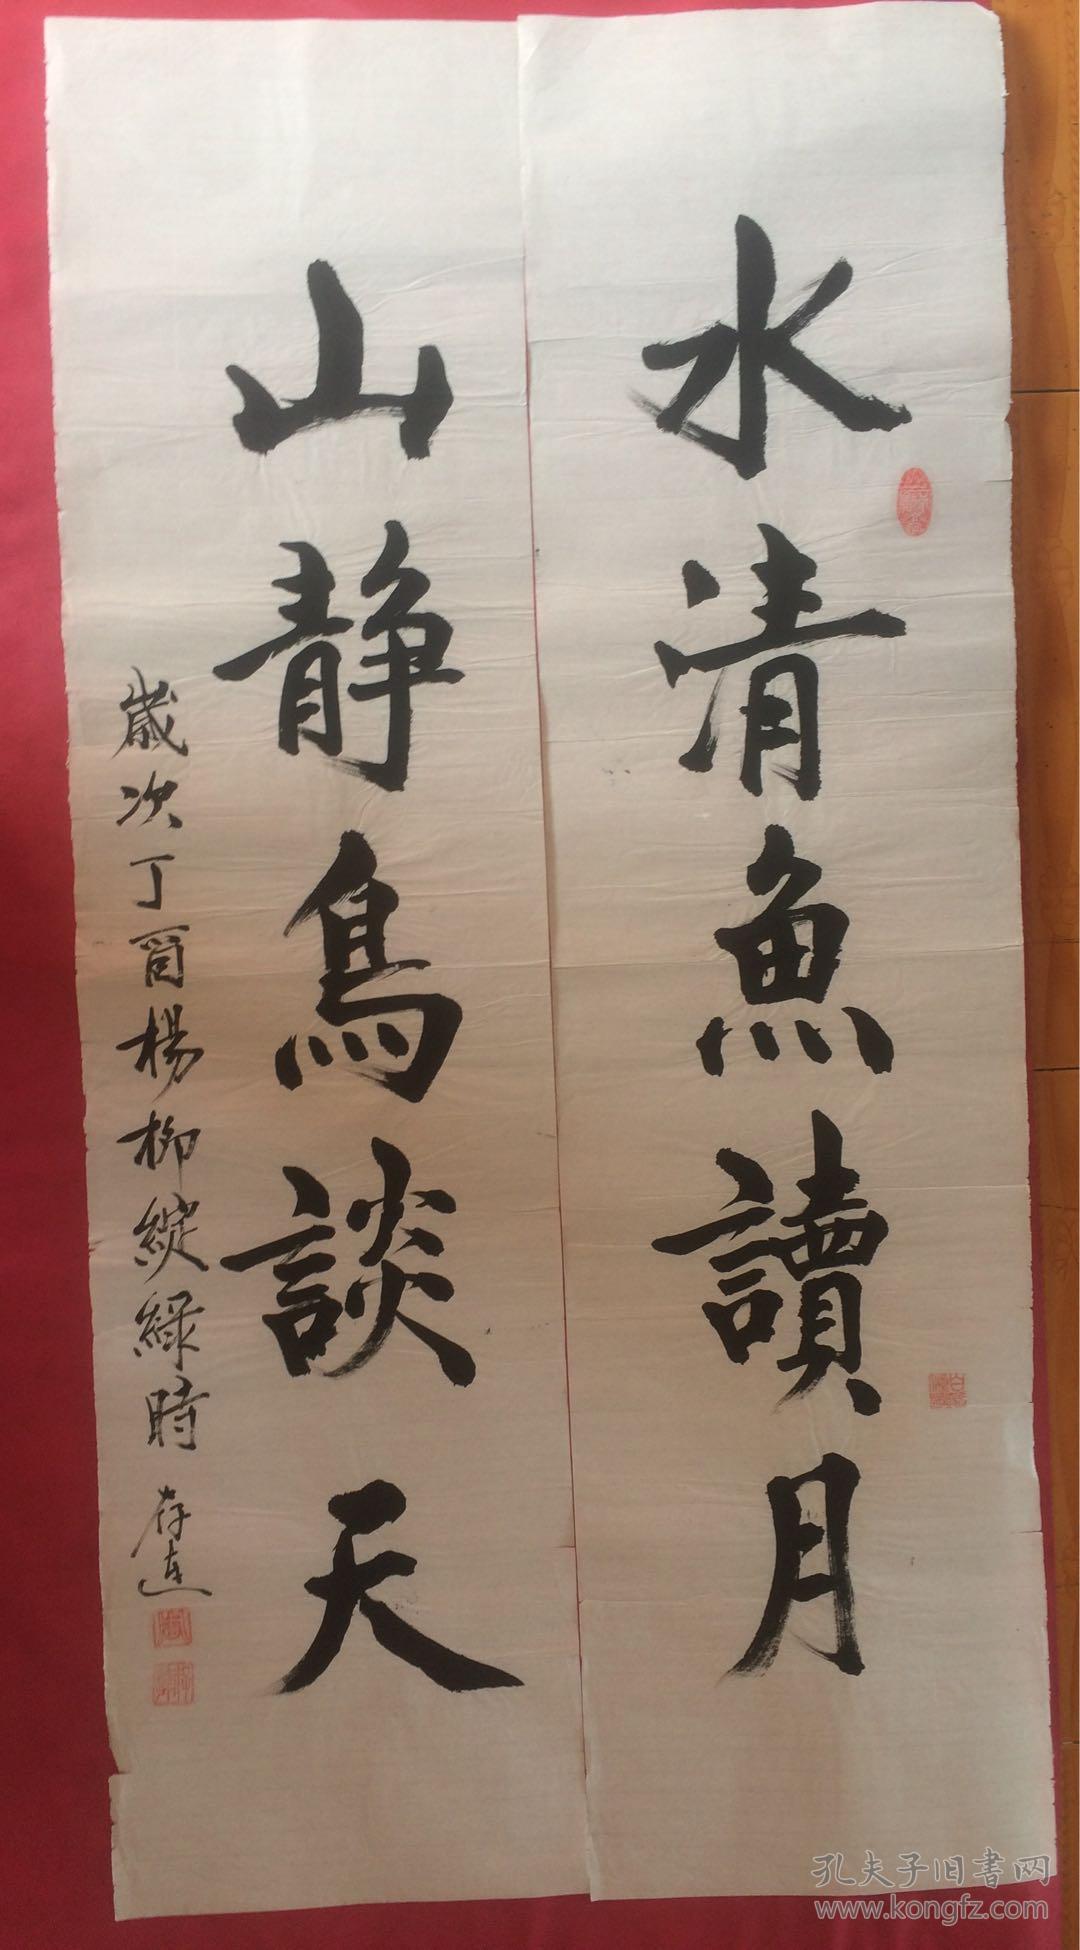 水清魚讀月
山静鳥談天
歲次丁酉楊柳綻綠時 存連
孔夫子旧书网
www.kongfz.com